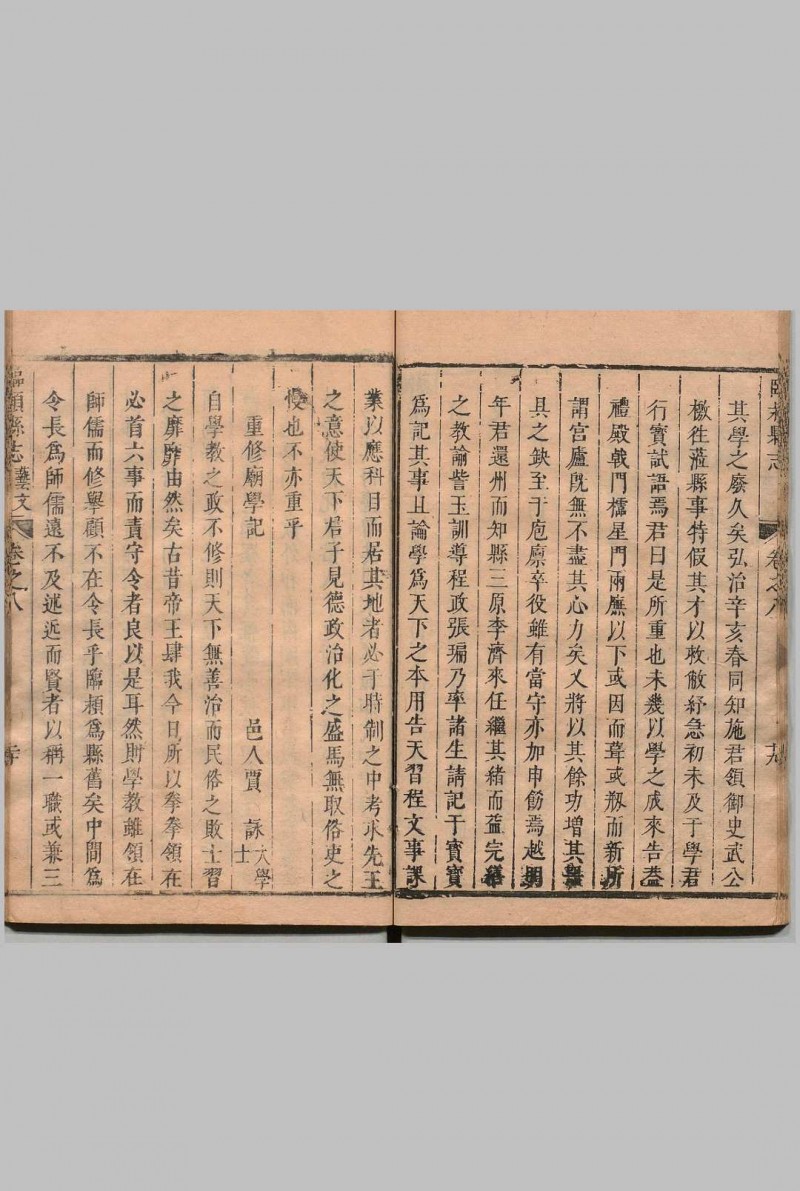 臨潁縣志 卷之八 十九
其學之廢久矣弘治辛亥春同知施君領御史武公
檄徃蒞縣事特假其才以敕敝紓急初未及于學君
行實試語焉君曰是所重也未幾以學之成來告葢
禮殿戟門櫺星門兩廡以下或因而葺或刱而新所
謂宮廬旣無不盡其心力矣又將以其餘功增其器
具之缺至于庖廪卒役雖有當守亦加申飭焉越明
年君還州而知縣三原李濟來任繼其緒而葢完繕
之教諭訾玉訓導程政張瑞乃率諸生請記于實實
爲記其事且論學爲天下之本用告夫習程文事課
業以應科目而居其地者必于時制之中考求先王
之意使天下君子見德政治化之盛焉無取俗吏之
慢也不亦重乎
重修廟學記 邑人賈詠大學士
自學教之政不修則天下無善治而民俗之敗士習
之靡靡由然矣古昔帝王肆我今日所以拳拳領在
必首六事而責守令者良以是耳然則學教雖領在
師儒而修舉顧不在令長乎臨頴爲縣舊矣中間爲
令長爲師儒遠不及述近而賢者以稱一職或兼三
臨頴縣志 藝文 卷之八 二十